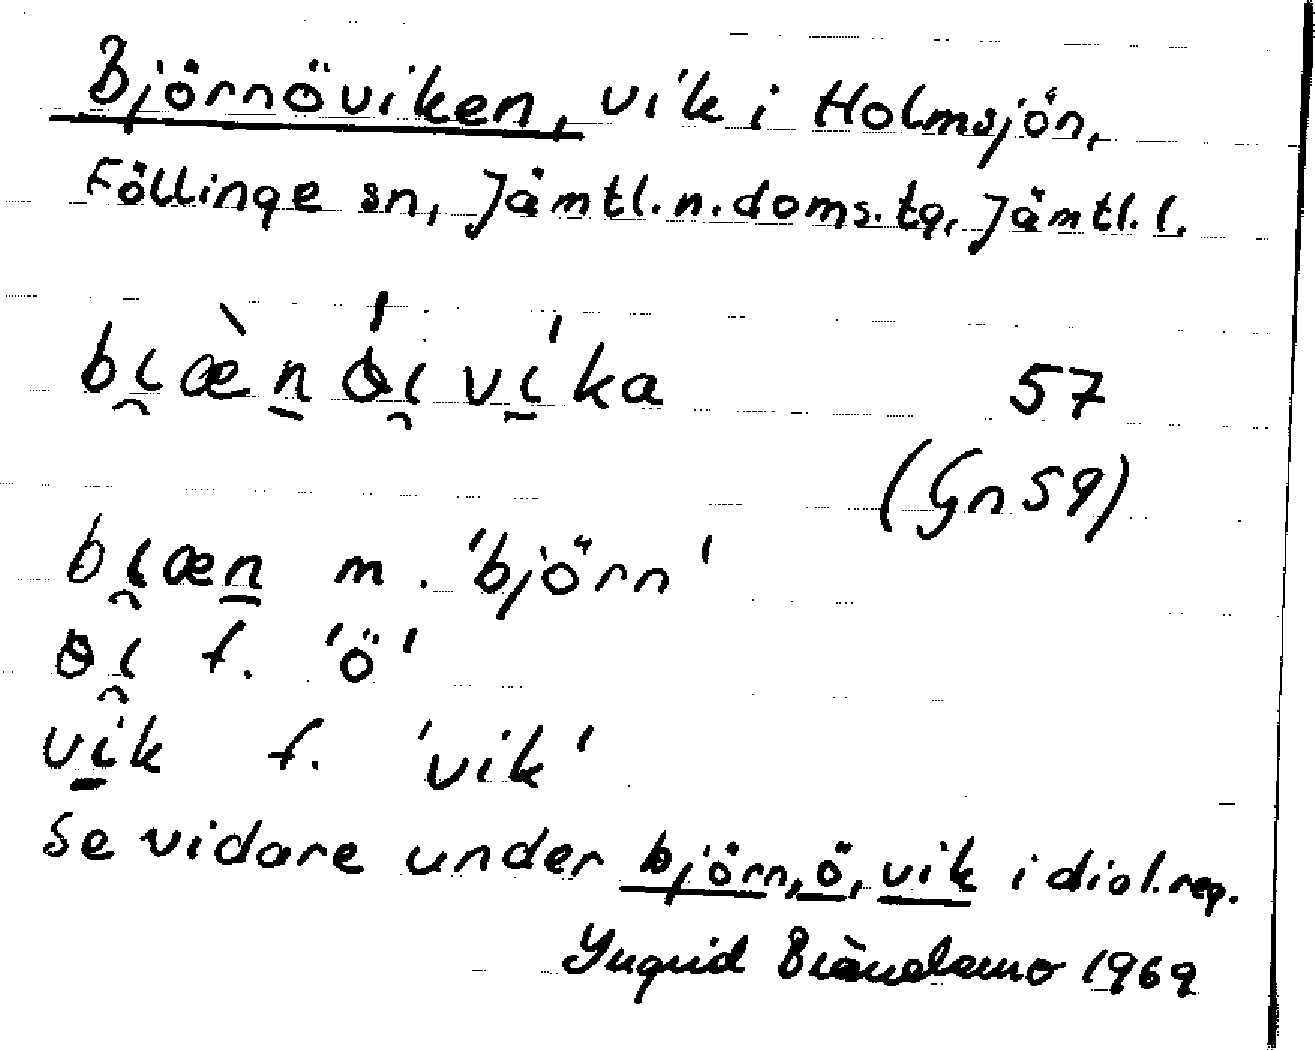 Björnöviken, vik i Holmsjön,
Föllinge sn, Jämtl.n.doms.tg, Jämtl.l.
bi̯æ̀n̲ ɵ́i̯ ví̲ka 57
(Gn 59)
bi̯æn̲ m. 'björn'
ɵi̯ f. 'ö'
vi̲k f. 'vik'
Se vidare under björn, ö, vik i dial.reg.
Ingrid Brändemo 1969